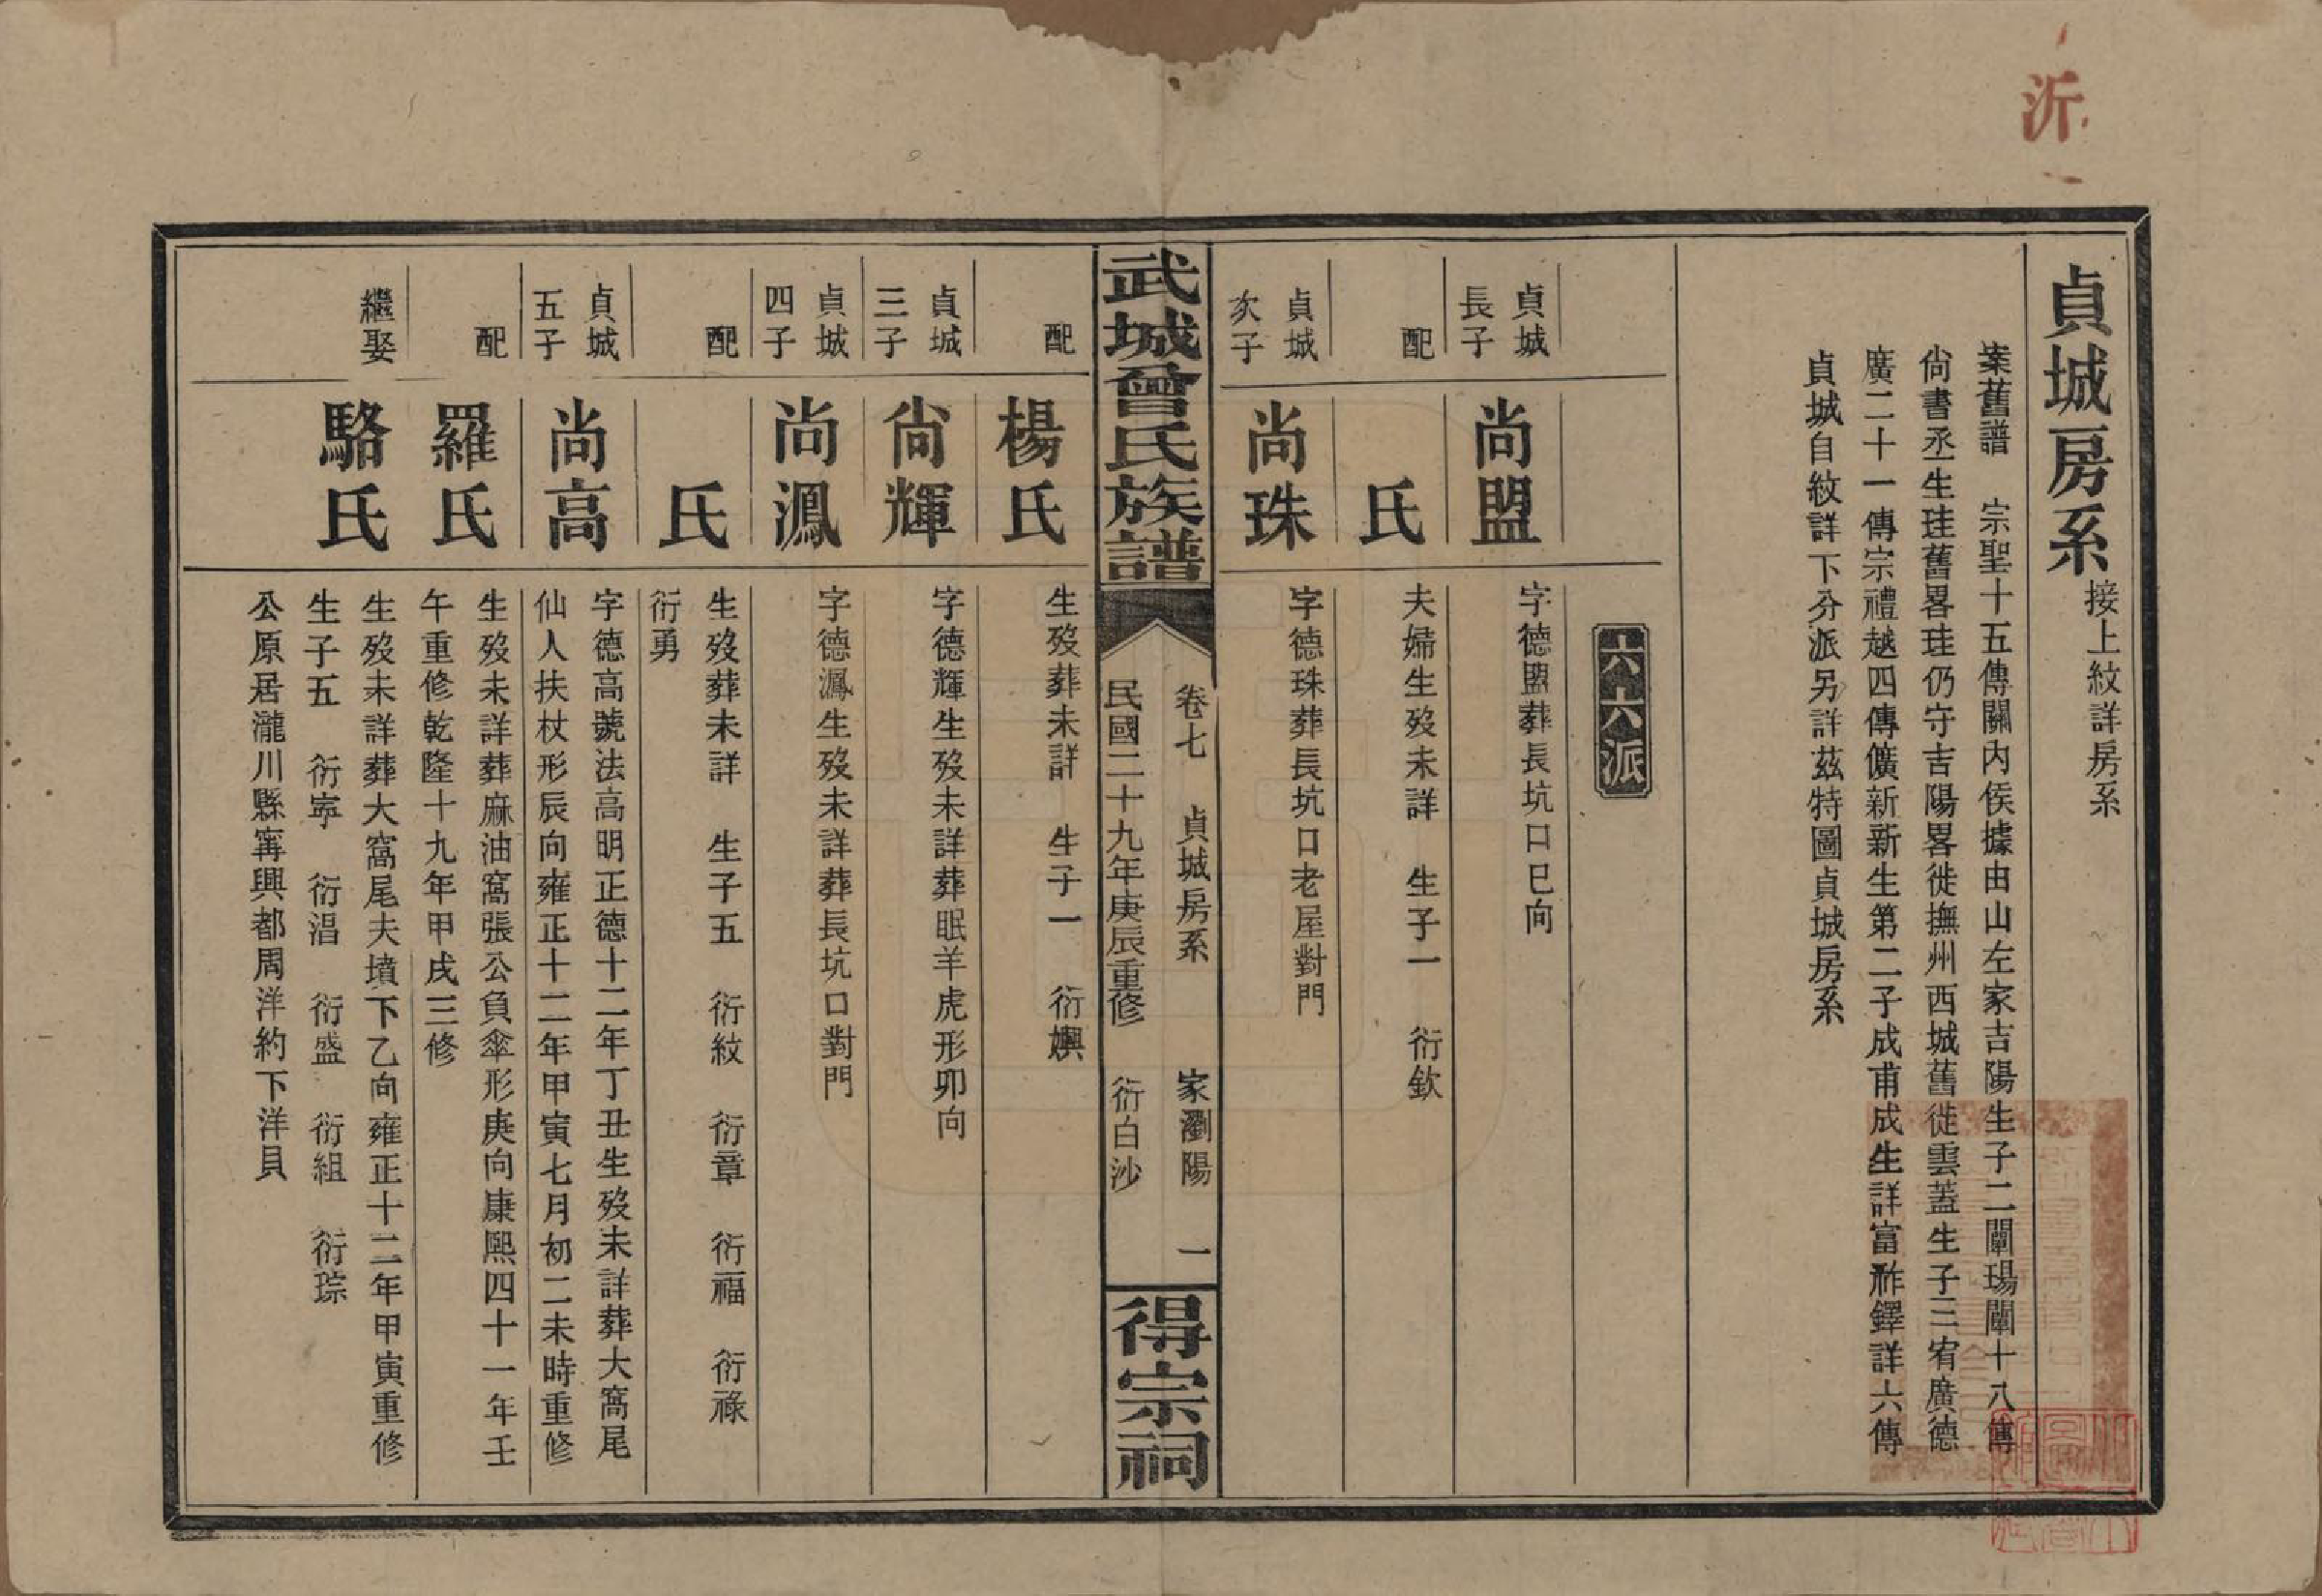 沂
貞城房系 接上紋詳房系
案舊譜 宗聖十五傳關內侯據由山左家吉陽生子二闡瑒闡十八傳
尙書丞生珪舊畧珪仍守吉陽畧徙撫州西城舊徙雲蓋生子三宥廣德
廣二十一傳宗禮越四傳儣新新生第二子成甫成生詳富祚鐸詳六傳
貞城自紋詳下分派另詳茲特圖貞城房系
六六派
貞城
長子
尚盟
字德盟葬長坑口巳向
配
氏
夫婦生歿未詳 生子一 衍欽
貞城
次子
尚珠
字德珠葬長坑口老屋對門
武城曾氏族譜
卷七 貞城房系 家瀏陽 一
民國二十九年庚辰重修 衍白沙
得宗祠
配
楊氏
生歿葬未詳 生子一 衍嶼
貞城
三子
尙輝
字德輝生歿未詳葬眠羊虎形卯向
貞城
四子
尚鳳
字德鳳生歿未詳葬長坑口對門
配
氏
生歿葬未詳 生子五 衍紋 衍章 衍福 衍祿
衍勇
貞城
五子
尚高
字德高號法高明正德十二年丁丑生歿未詳葬大窩尾
仙人扶杖形辰向雍正十二年甲寅七月初二未時重修
配
羅氏
生歿未詳葬麻油窩張公負傘形庚向康熙四十一年壬
午重修乾隆十九年甲戌三修
繼娶
駱氏
生歿未詳葬大窩尾夫墳下乙向雍正十二年甲寅重修
生子五 衍寧 衍滔 衍盛 衍組 衍琮
公原居瀧川縣寗興都周洋約下洋貝